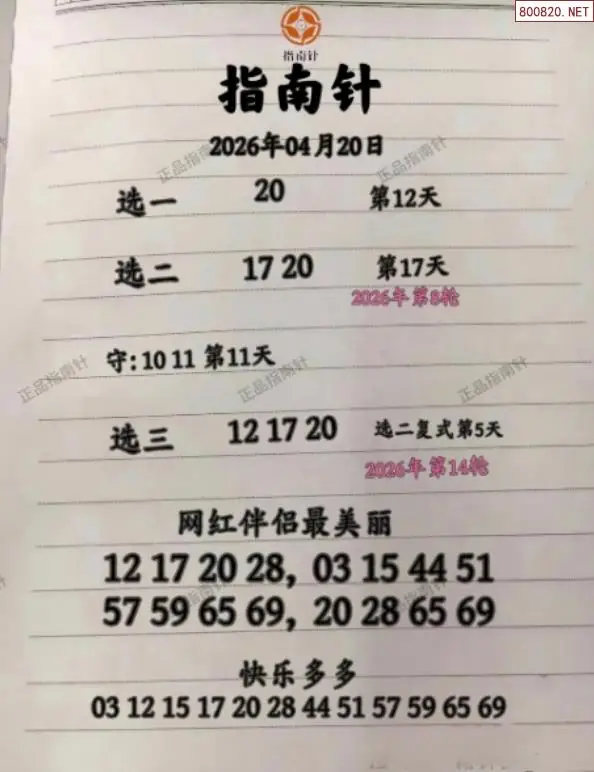 800820.NET
指南针
指南针
2026年04月20日
正品指南针 正品指南针
选一 20 第12天
选二 17 20 第17天
2026年第8轮
守:10 11 第11天
正品指南针 正品指南针 正品指南针
选三 12 17 20 选二复式第5天
2026年第14轮
网红伴侣最美丽
12 17 20 28, 03 15 44 51
57 59 65 69, 20 28 65 69
快乐多多
03 12 15 17 20 28 44 51 57 59 65 69